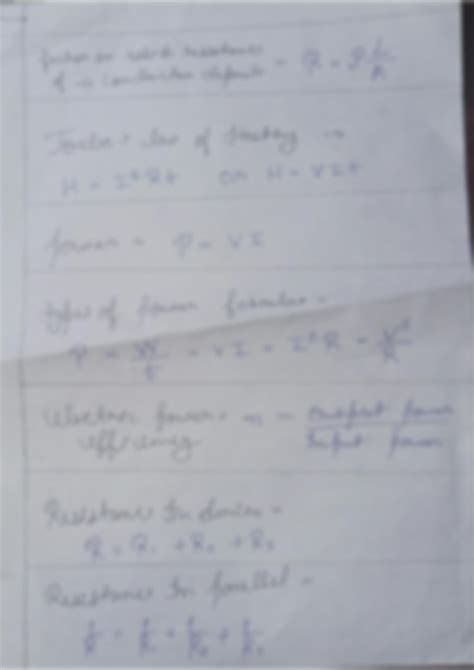 factor on which resistance
of a conductor depends = R = ρ L/A
Joule's law of heating →
H = I²Rt or H = VIt
power = P = VI
types of power formulas =
P = W/t = VI = I²R = V²/R
electric power = n = output power / Input power
efficiency
Resistance In Series =
R = R₁ + R₂ + R₃
Resistance In parallel =
1/R = 1/R₁ + 1/R₂ + 1/R₃